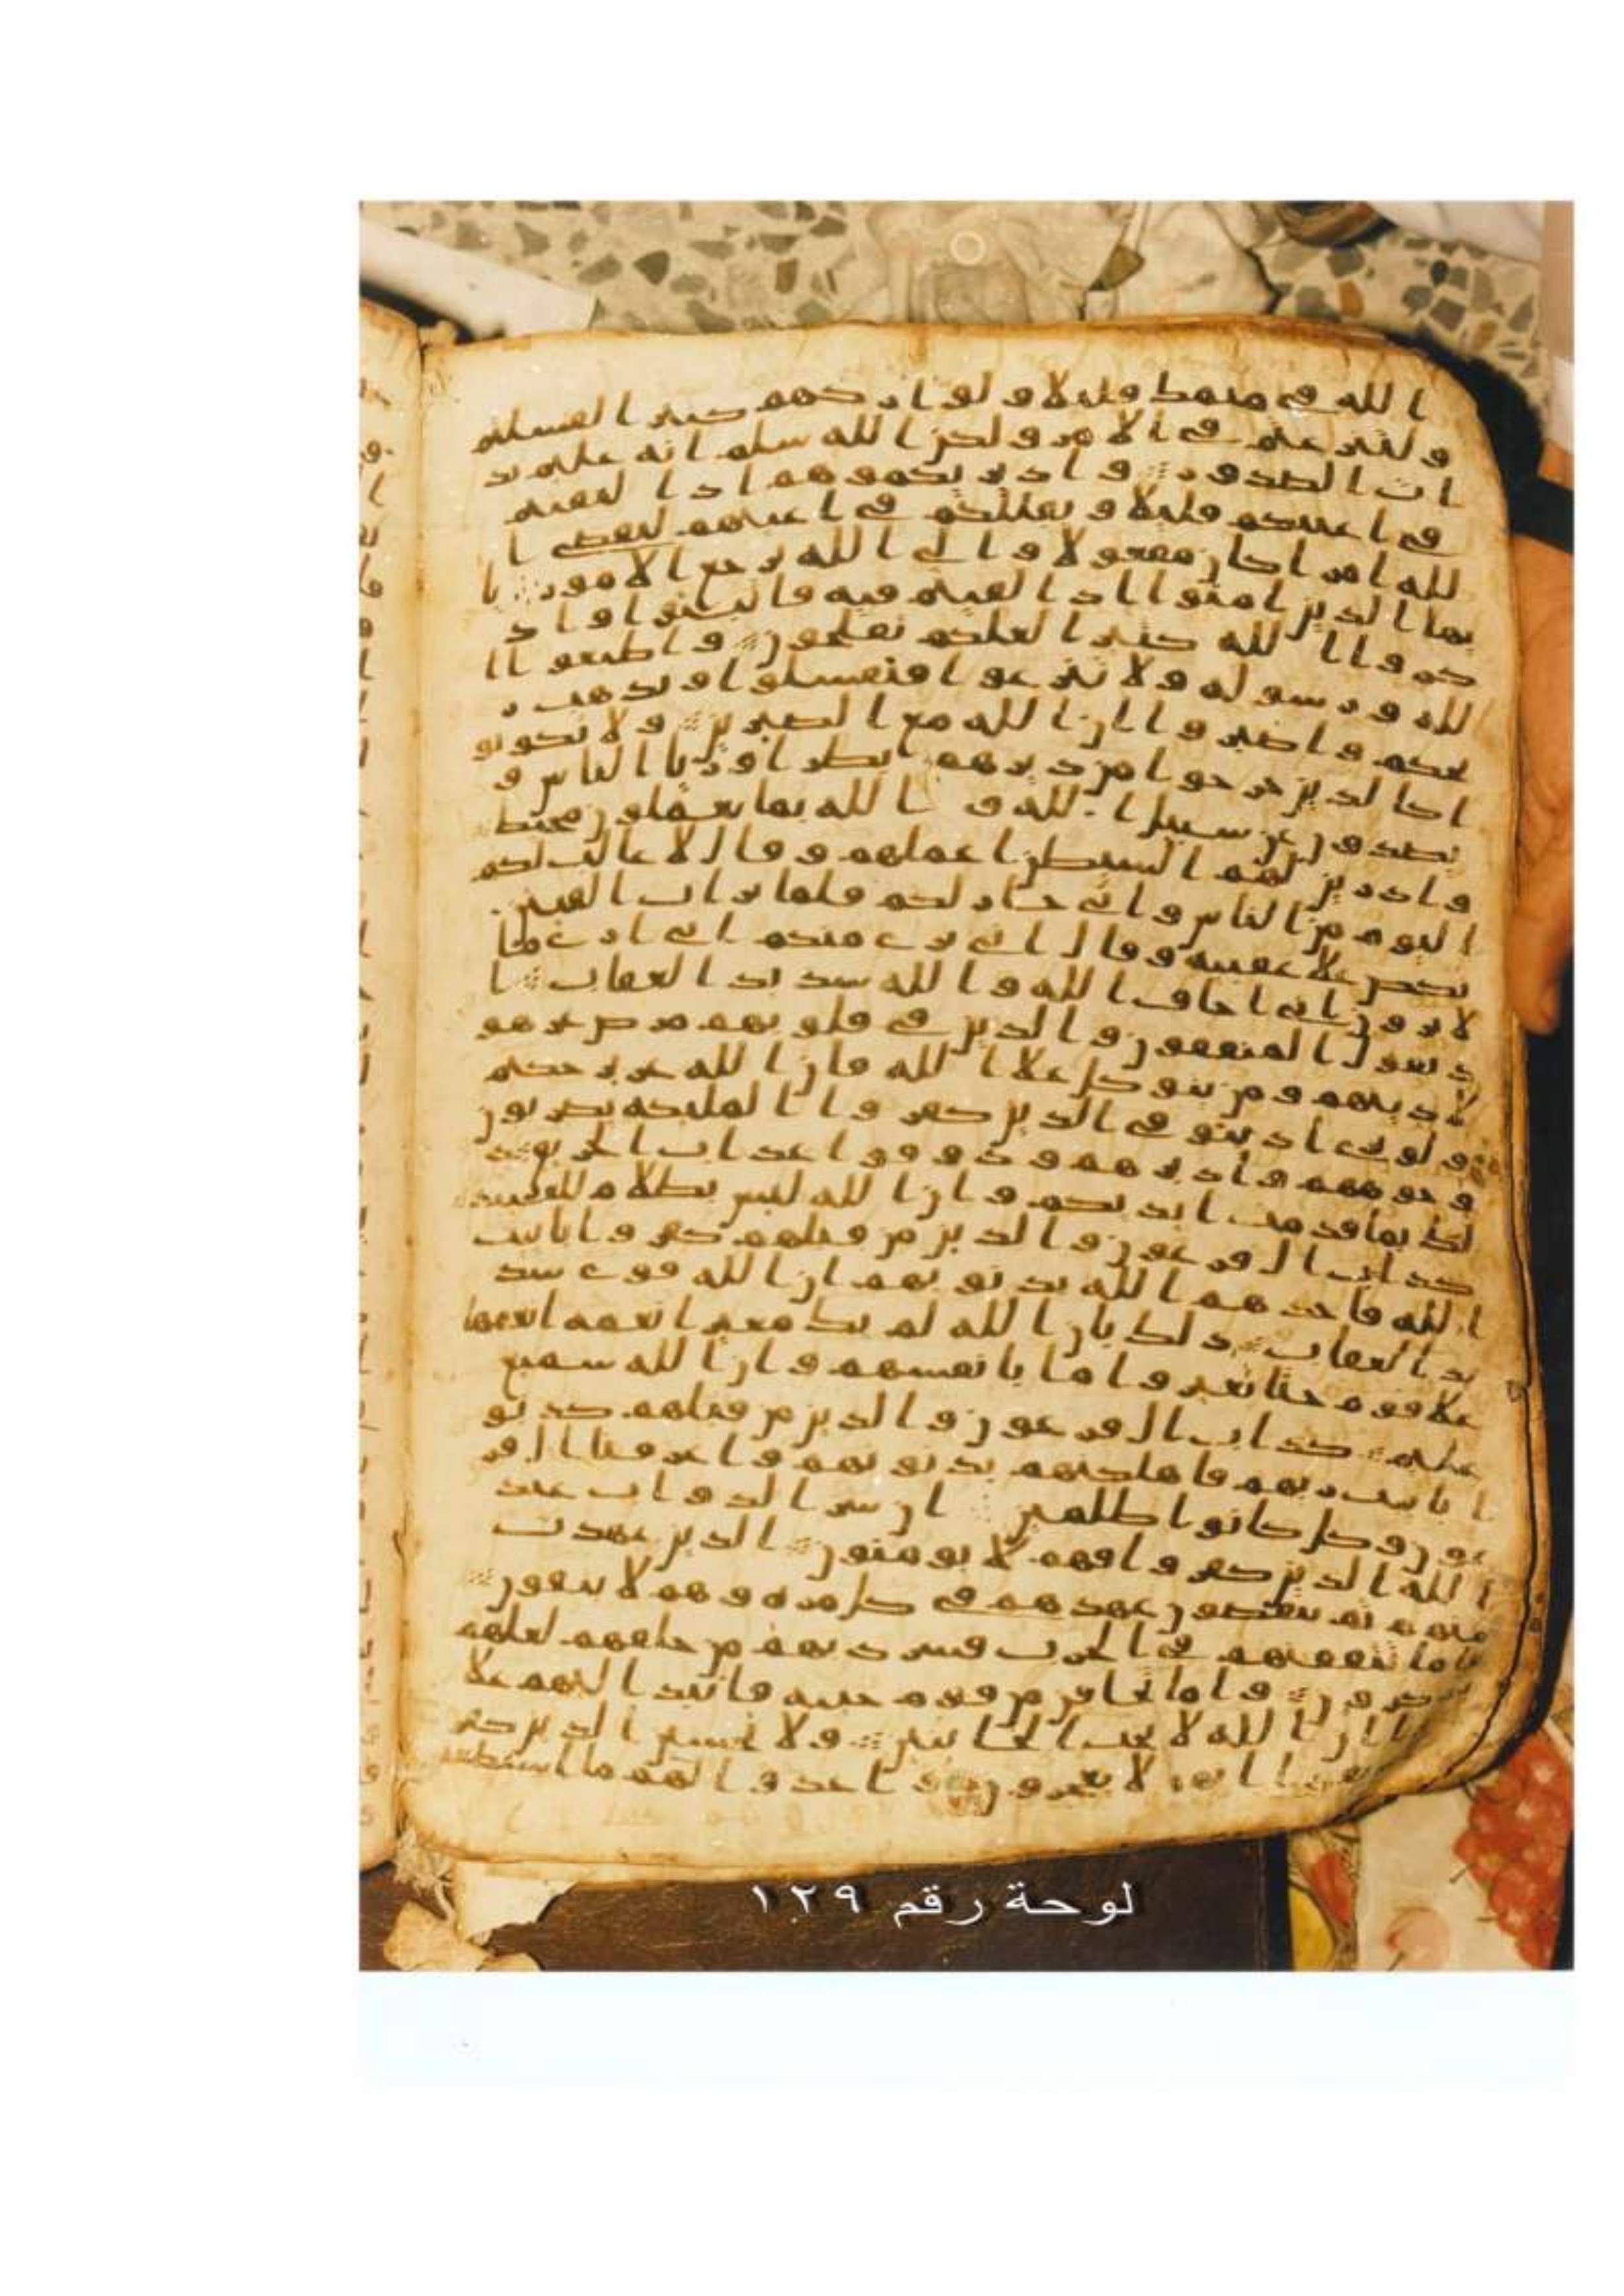 ا لله في منمك قليلا ولو ا ر يكهم كثير ا لفشلتم
ولتنزعتم في الا مر ولكن ا لله سلم ا نه عليم بذ
ا ت ا لصدور و ا ذ ير يكموهم ا ذ ا لتقيتم
في ا عينكم قليلا و يقللكم في ا عينهم ليقضي ا
لله امر ا كان مفعولا و ا لى ا لله ترجع الا مور يا
يها ا لذين ا منو ا ا ذ ا لقيتم فيه فا ثبتو ا و ا ذ
كرو ا ا لله كثير ا لعلكم تفلحون و ا طيعو ا ا
لله و رسوله ولا تنزعو ا فتفشلو ا و تذهب ر
يحكم و ا صبرو ا ا ن ا لله مع ا لصبرين ولا تكونو
ا كا لذين خرجو ا من ديرهم بطر ا و ريا ا لناس و
يصدون عن سبيل ا لله و ا لله بما يعملون محيط
و ا ذ زين لهم ا لشيطن ا عملهم و قا ل لا غا لب لكم
ا ليوم من ا لناس و ا ني جا ر لكم فلما ترا ت ا لفيتن
نكص علا عقبيه و قا ل ا ني بري منكم ا ني ا رى ما
لا ترون ا ني ا خاف ا لله و ا لله شديد ا لعقاب ا
ذ يقول ا لمنفقون و ا لذين في قلوبهم مرض غر هو
لا دينهم و من يتوكل علا ا لله فا ن ا لله عزيز حكيم
و لو ترى ا ذ يتوفى ا لذين كفرو ا ا لمليكة يضربون
و جوههم و ا د برهم و ذ وقو ا عذا ب ا لحريق ذ
لك بما قد مت ا يد يكم و ا ن ا لله ليس بظلا م للعبيد
كد ا ب ا ل فر عون و ا لذين من قبلهم كفرو ا با يت
ا لله فا خذ هم ا لله بذ نو بهم ا ن ا لله قوي شد
يد ا لعقاب ذ لك با ن ا لله لم يك مغير ا نعمه ا نعمها
علا قوم حتا يغيرو ا ما با نفسهم و ا ن ا لله سميع
عليم كد ا ب ا ل فر عون و ا لذين من قبلهم كذ بو
ا با يت ر بهم فا هلكنهم بذ نو بهم و ا غر قنا ا ل فر
عون و كل كا نو ا ظلمين ا ن شر ا لد و ا ب عند
ا لله ا لذين كفرو ا فهم لا يو منون ا لذين عهد ت
منهم ثم ينقضون عهد هم في كل مره و هم لا يتقون
فا ما تثقفنهم في ا لحرب فشر د بهم من خلفهم لعلهم
يذ كرون و ا ما تخا فن من قوم خينه فا نبذ ا ليهم علا
ا ا ن ا لله لا يحب ا لخا ينين ولا تحسبن ا لذين كفر
ا نهم لا يعجزون و ا عد و ا لهم ما ا ستطعتم
لوحة رقم ١٢٩